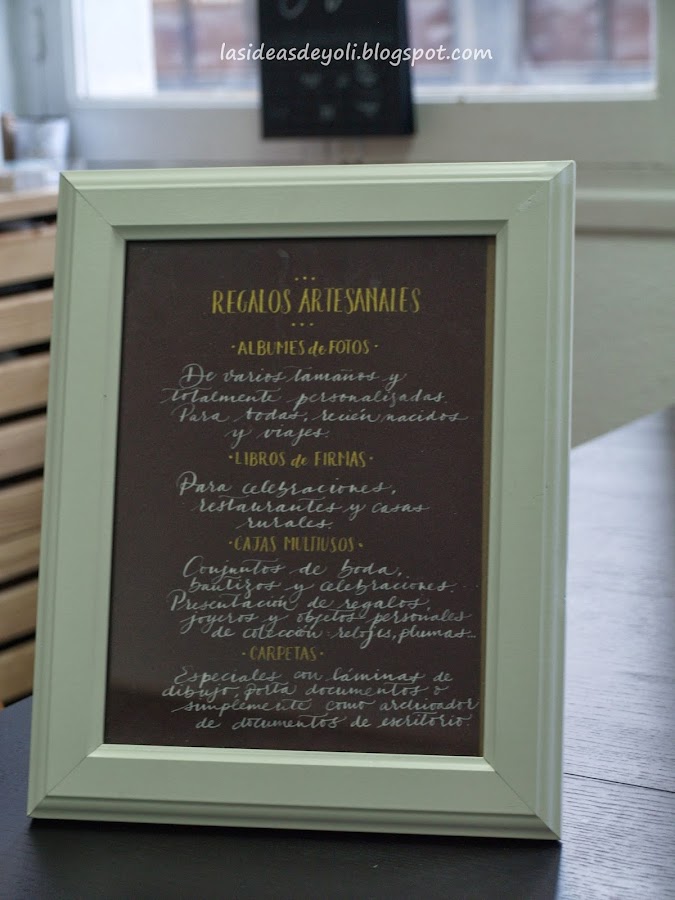 lasideasdeyoli.blogspot.com
REGALOS ARTESANALES
·ALBUMES de FOTOS·
De varios tamaños y
totalmente personalizadas.
Para bodas, recién nacidos
y viajes.
·LIBROS de FIRMAS·
Para celebraciones,
restaurantes y casas
rurales.
·CAJAS MULTIUSOS·
Conjuntos de boda,
bautizos y celebraciones.
Presentación de regalos,
joyeros y objetos personales
de colección: relojes, plumas...
·CARPETAS·
Especiales con láminas de
dibujo, porta documentos o
simplemente como archivador
de documentos de escritorio.